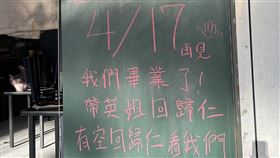 4/17
再見
我們畢業了!
帶英姐回歸仁
有空回歸仁看我們